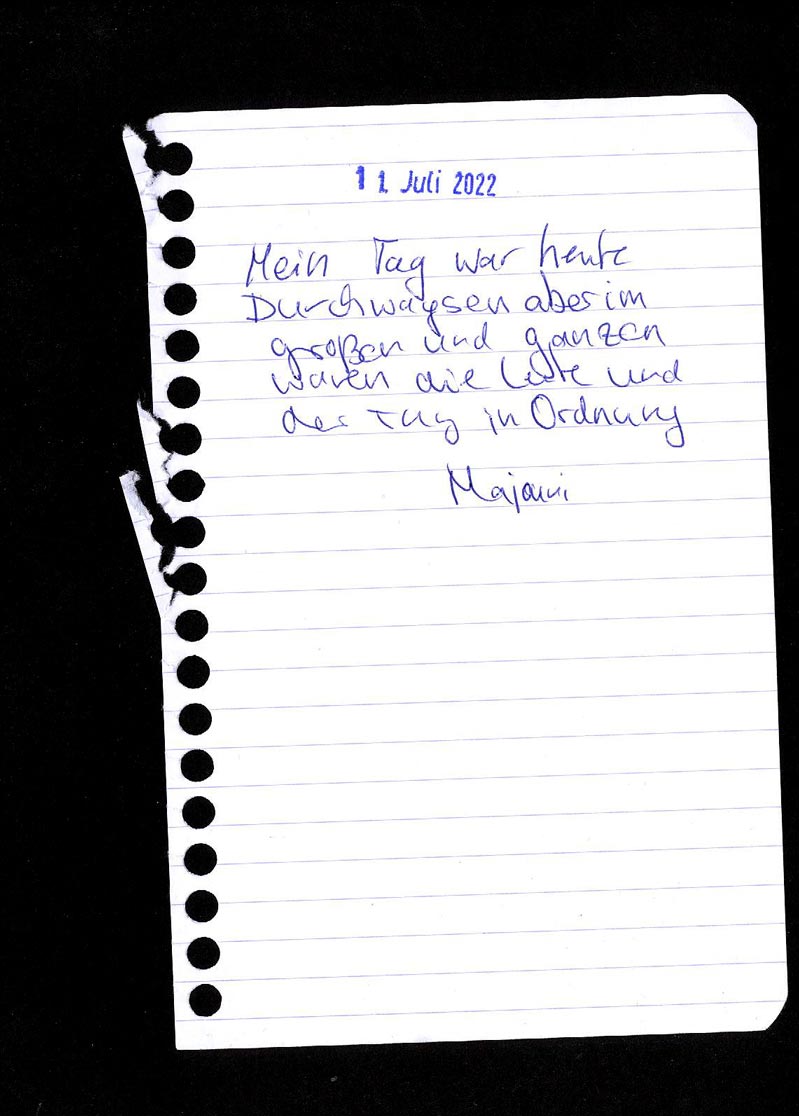 11 Juli 2022
Mein Tag war heute
Durchwaysen aber im
großen und ganzen
waren die Leute und
der Tag in Ordnung